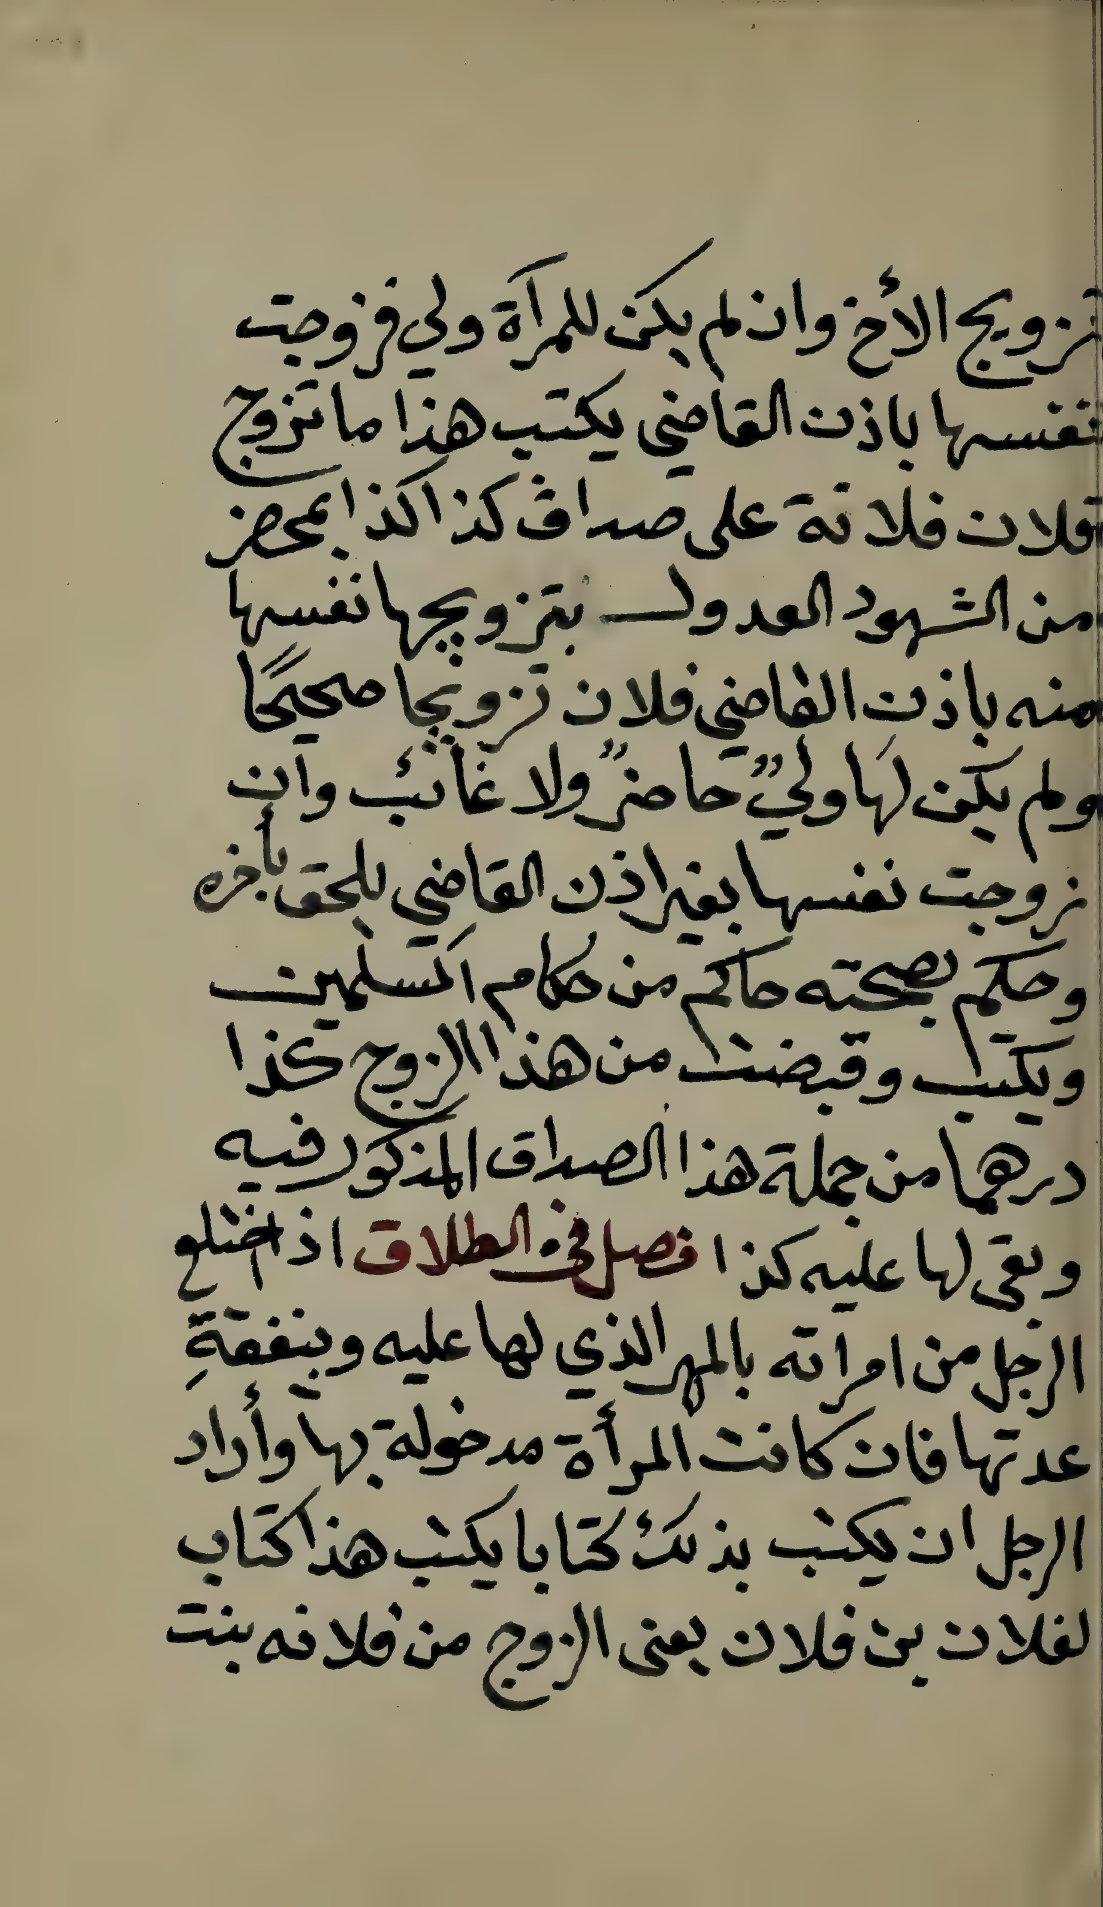 تزويج الأخ وان لم يكن للمرآة ولي فزوجت
نفسها باذن القاضي يكتب هذا ما تزوج
فلان فلانة على صداق كذا كذا بمحضر
من الشهود العدول بتزويجها نفسها
منه باذن القاضي فلان تزويجا صحيحًا
ولم يكن لهَا وليٌّ حاضرٌ ولا غائب وان
زوجت نفسها بغير اذن القاضي يلحق بأخره
وحكم بصحته حاكم من حكام المسلمين
ويكتب وقبضت من هذا الزوج كذا
درهما من جملة هذا الصداق المذكور فيه
وبقى لها عليه كذا فصل في الطلاق اذا اختلع
الرجل من امراته بالمهر الذي لها عليه وبنفقةِ
عدتها فان كانت المرأة مدخولة بها وأراد
الرجل ان يكتب بذلك كتابا يكتب هذا كتاب
لفلان بن فلان يعنى الزوج من فلانه بنت